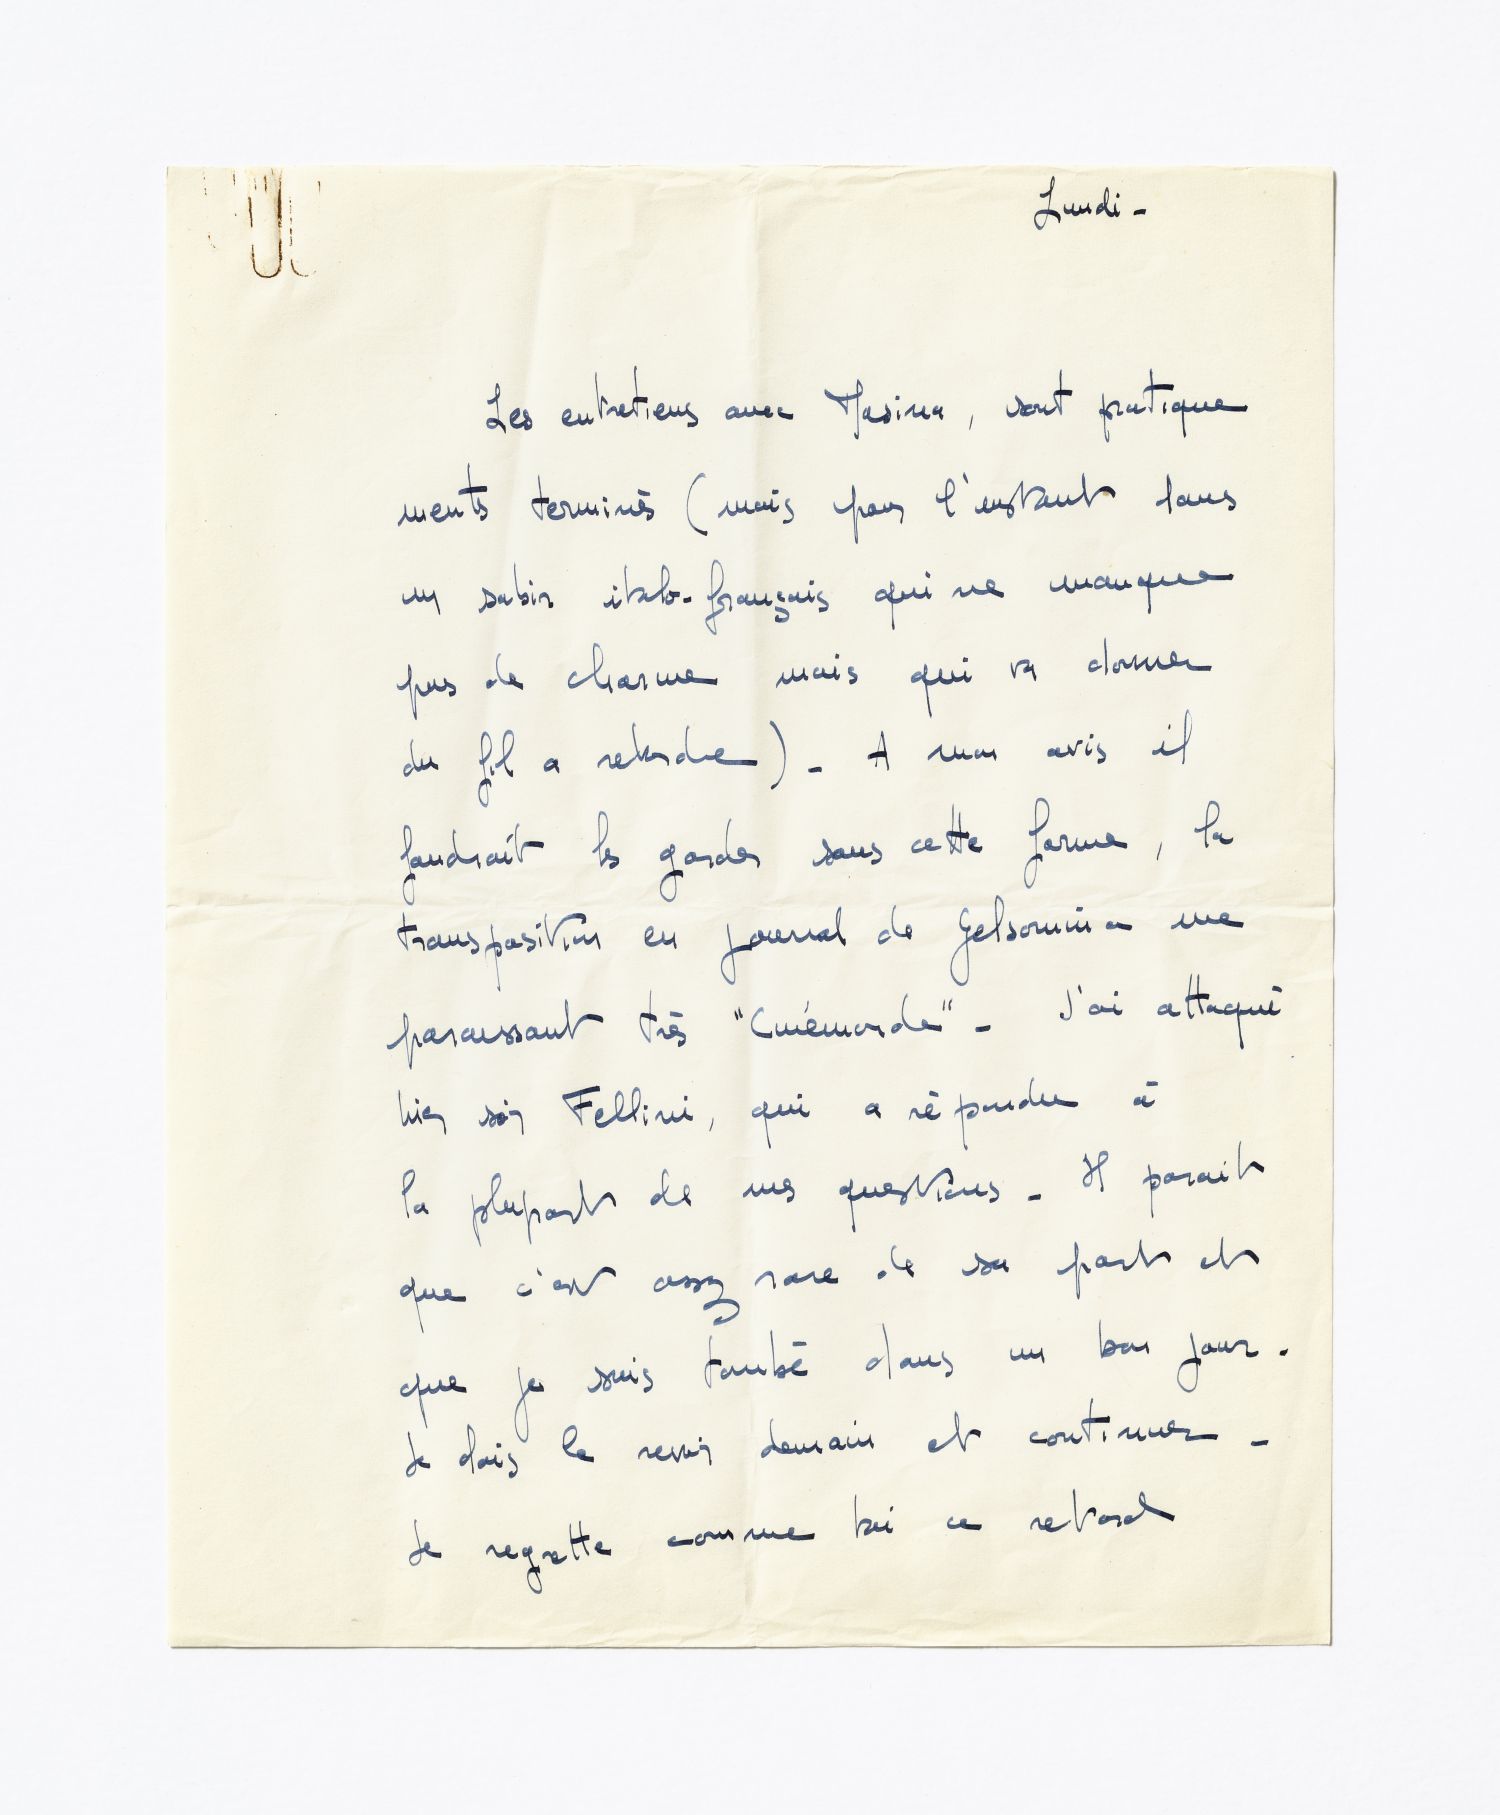 Lundi -
Les entretiens avec Masina, sont pratique
ments terminés (mais pour l'instant dans
un sabir italo-français qui ne manque
pas de charme mais qui va donner
du fil a retordre) - A mon avis il
faudrait les garder sous cette forme, la
transposition en journal de Gelsomina me
paraissant très "Cinémonde" - J'ai attaqué
hier soir Fellini, qui a répondu à
la plupart de mes questions - Il parait
que c'est assez rare de sa part et
que je suis tombé dans un bon jour.
Je dois le revoir demain et continuer -
Je regrette comme toi ce retard